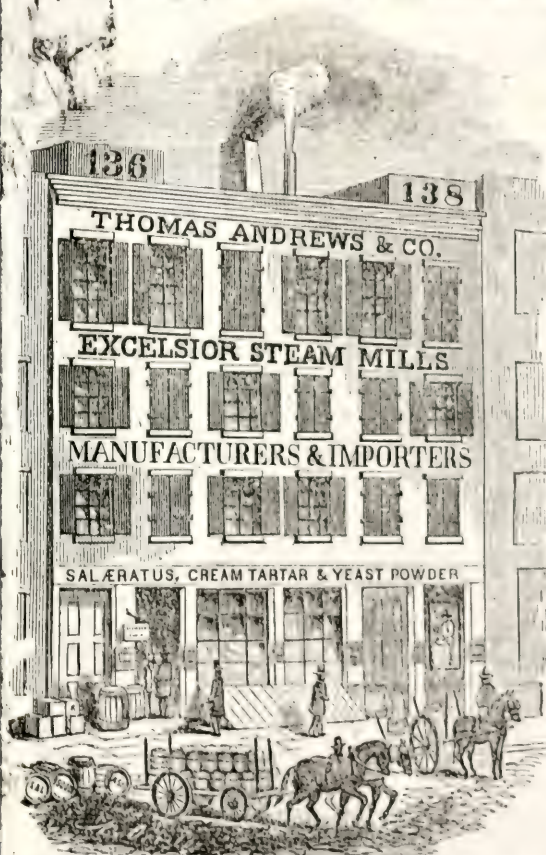 136
138
THOMAS ANDREWS & CO.
EXCELSIOR STEAM MILLS
MANUFACTURERS & IMPORTERS
SALÆRATUS, CREAM TARTAR & YEAST POWDER